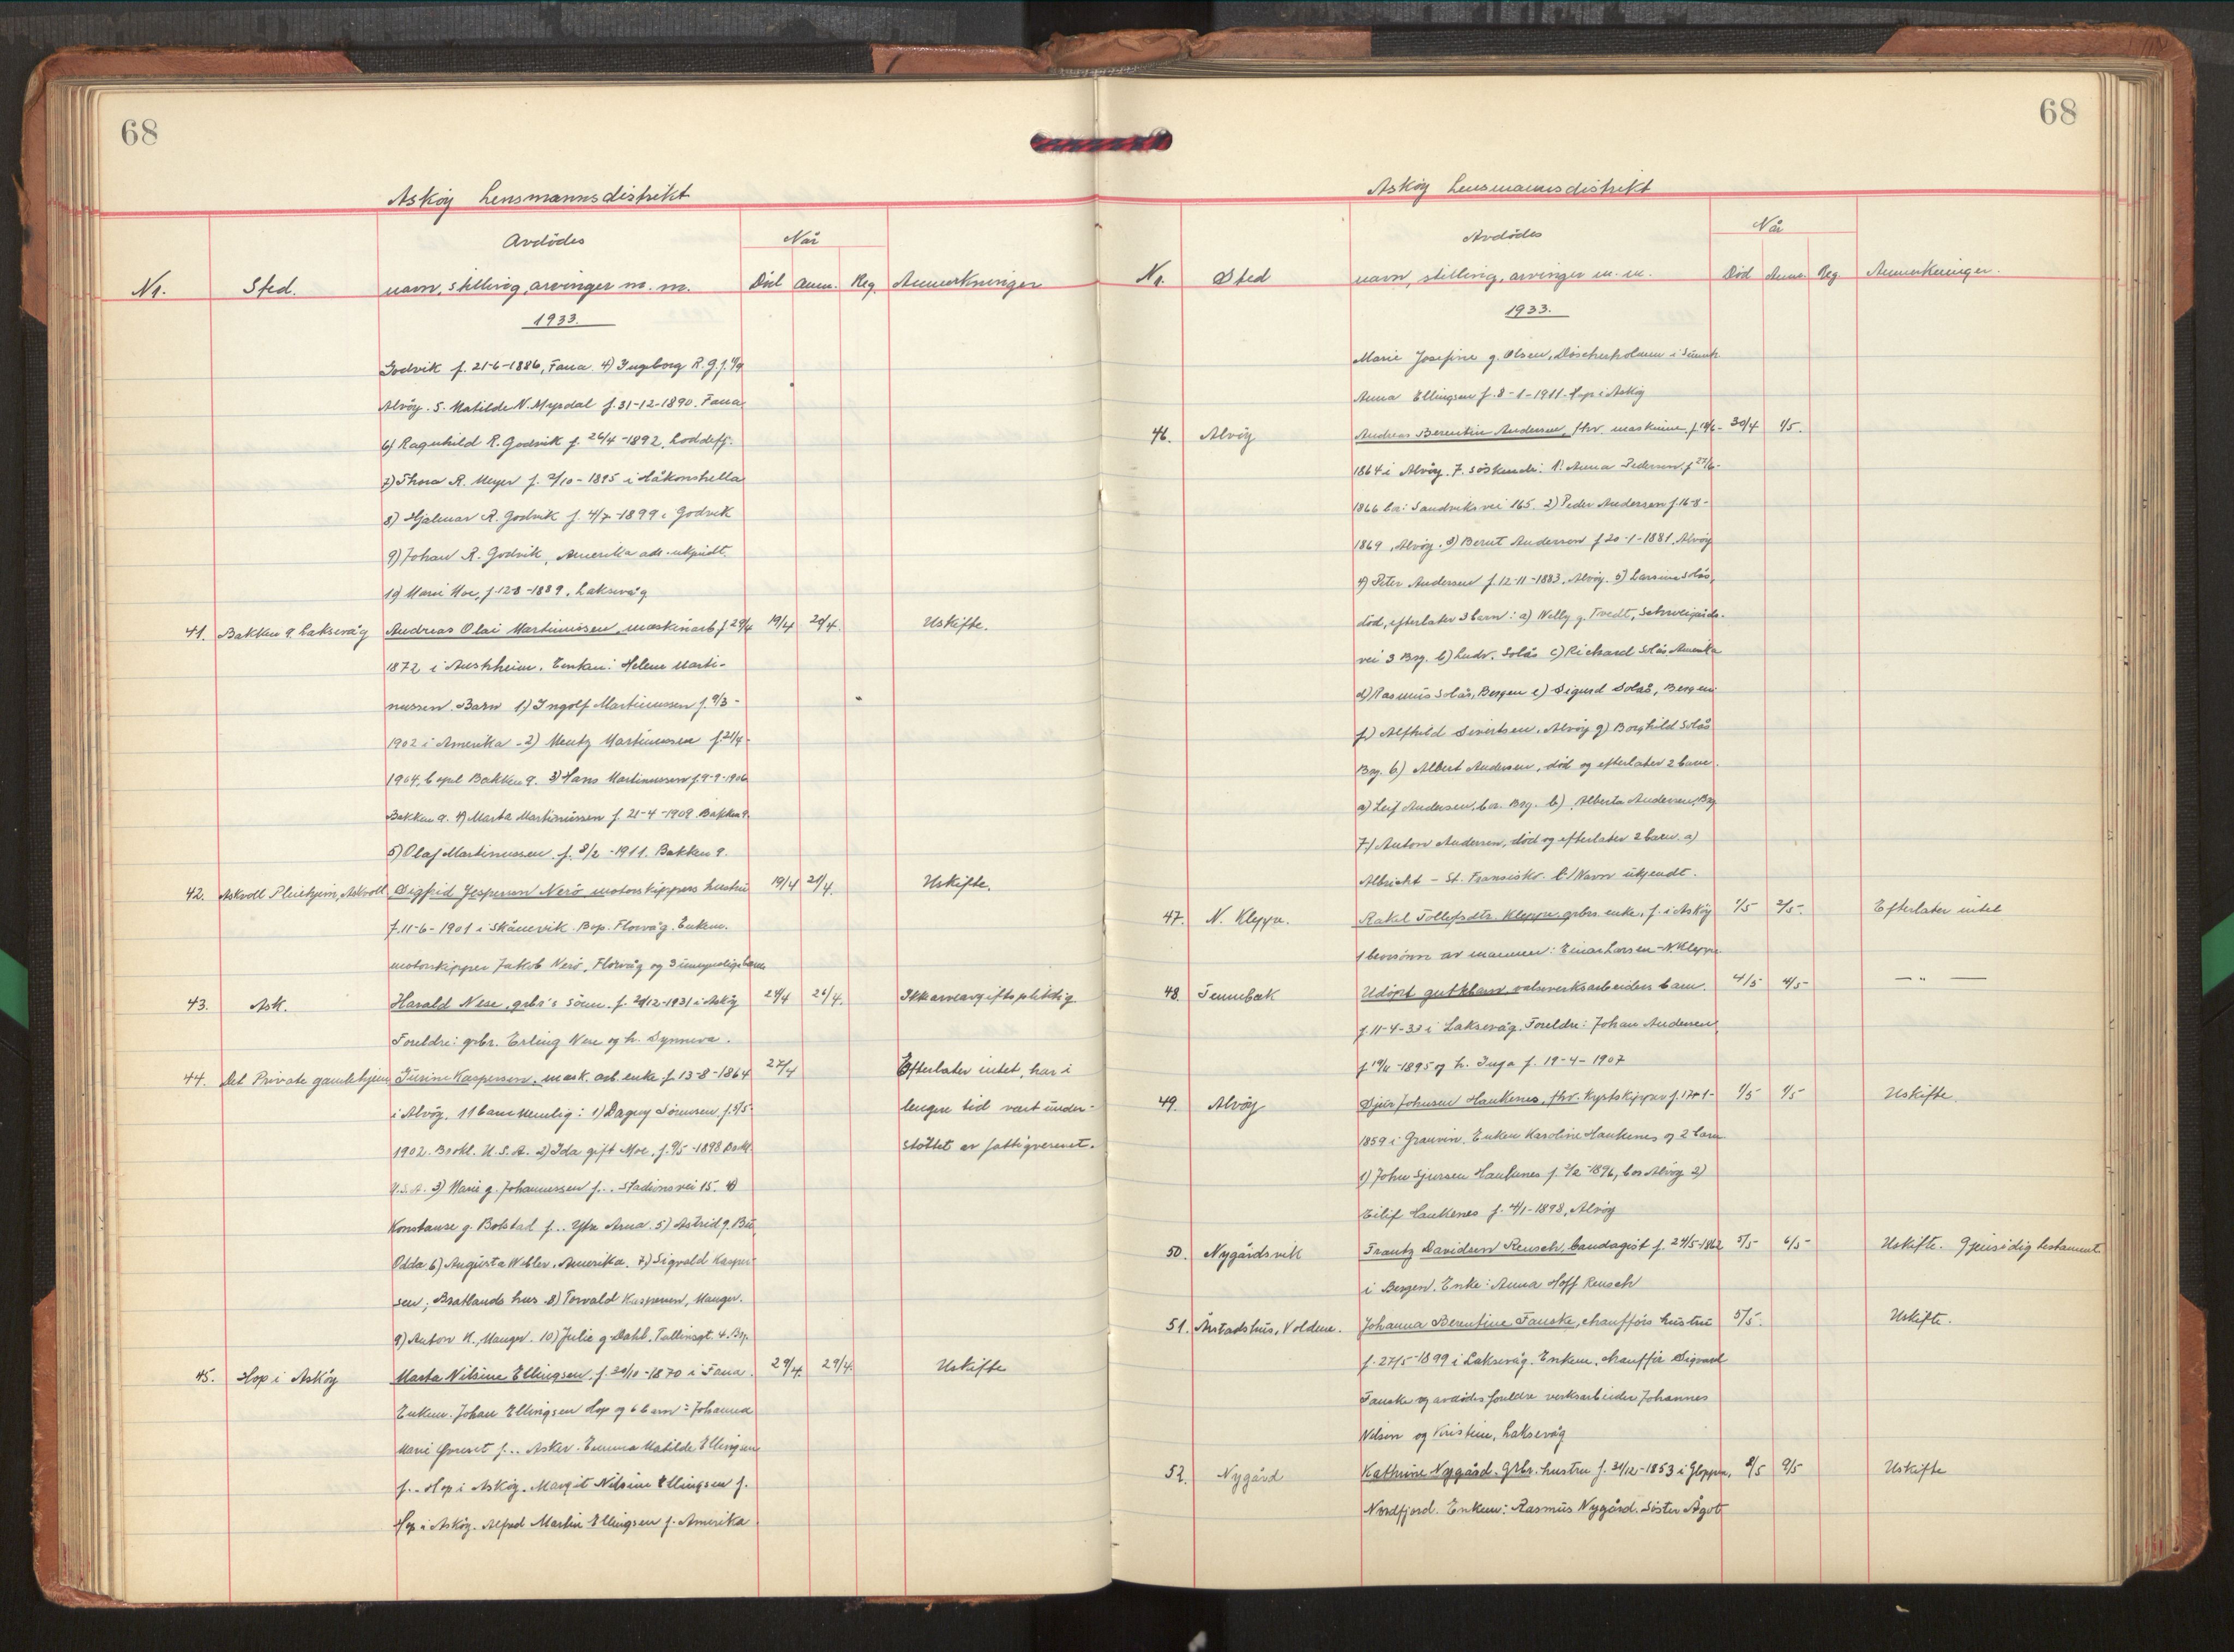 68
Askøy Lensmannsdistrikt
Avdødes
Når
Nr. Sted. navn, stilling, arvinger m. m. Død anm. Reg. Anmerkninger
1933.
Godvik f. 21-6-1886, Fana. 4) Ingeborg R. G. f.
Alvøy. 5. Matilde N. Myrdal f. 31-12-1890. Fana
6) Ragnhild R. Godvik f. 26/4-1892, Loddefj.
7) Thora R. Meyer f. /10-1895 i Håkonshella
8) Hjalmar R. Godvik f. 4/7-1899 i Godvik
9) Johan R. Godvik, Amerika adr. ukjendt.
10) Marie Moe, f. 12-8-1889, Laksevåg
41. Bakken 9. Laksevåg Andreas Olai Martinussen, maskinarb. f 29/4 19/4 20/4. Uskifte.
1872 i Austrheim. Enken: Helene Marti-
nussen. Barn 1) Ingolf Martinussen f. 9/3-
1902 i Amerika - 2) Mentz Martinussen f. 21/4-
1904, bopel Bakken 9. 3) Hans Martinussen f. 9-9-1906
Bakken 9. 4) Marta Martinussen f. 21-4-1909 Bakken 9.
5) Olaf Martinussen f. 8/2-1911. Bakken 9.
42. Askvoll Pleiehjem, Askvoll Sigfrid Jespersen Nerø motorskippers hustru 19/4 21/4. Uskifte.
f. 11-6-1901 i Skånevik. Bop. Florvåg. Enkem.
motorskipper Jakob Nerø, Florvåg og 3 umyndige barn
43. Ask. Harald Nese, grbr's sønn. f. 20/12-1931 i Askøy 24/4 26/4. Ikke arveavgiftspliktig
Foreldre: grbr. Erling Nese og h. Synneva.
44. Det Private gamlehjem Jusine Kaspersen, mask. arb. enke f 13-8-1864 27/4 Efterlater intet, har i
i Alvøy. 11 barn nemlig: 1) Dagny Sørensen, f. 5/5 lengre tid vært under-
1902. Brokl. U. S. A. 2) Ida gift Moe, f. 9/5-1898 Brokl. støttet av fattigvesenet.
U.S.A. 3) Marie g. Johannessen f... Stadionsvei 15. 4)
Konstanse g. Botstad f... Ytre Arna. 5) Astrid g. Bu,
Odda. 6) Augusta Webler, Amerika. 7) Sigvald Kasper-
sen, Bratlands hus 8) Torvald Kaspersen, Manger.
9) Anton K., Manger. 10) Julie g. Dahl, Tallinsgt. 4. Bg.
45. Hop i Askøy Marta Nilsine Ellingsen f. 30/10-1870 i Fana. 29/4. 29/4. Uskifte
Enkem. Johan Ellingsen Hop og 6 barn: Johanna
Marie f... Asker. Emma Matilde Ellingsen
f.. Hop i Askøy. Margit Nilsine Ellingsen f.
Hop i Askøy. Alfred Martin Ellingsen f. Amerika
68
Askøy Lensmannsdistrikt
Avdødes
Når
Nr. Sted navn, stilling, arvinger m. m. Død Anm. Reg. Anmerkninger.
1933.
Marie Josefine g. Olsen, i
Anna Ellingsen f. 8-1-1911. Hop i Askøy
46. Alvøy Andreas Berentin Andersen, fhv. maskinm. f. 30/4 1/5.
1864 i Alvøy. 7. søskende: 1. Anna Pedersen f 27/6-
1866 bo: Sandviksvei 165. 2) Peder Andersen f. 16-8-
1869, Alvøy. 3) Berent Andersen f 20-1-1881, Alvøy
4) Peter Andersen f. 12-11-1883, Alvøy. 5) Larsine Solås
død, efterlater 3 barn: a) Welly g. Tvedt, Schweigaards-
vei 3 Brg. b) Ludv. Solås c) Richard Solås Amerika
d) Rasmus Solås, Bergen e) Sigurd Solås, Bergen
f.) Alfhild Sivertsen, Alvøy g) Borghild Solås
Brg. 6.) Albert Andersen, død og efterlater 2 barn.
a) Leif Andersen, bo. Brg. b) Alberta Andersen, Brg
7.) Anton Andersen, død og efterlater 2 barn. a)
Albricht - St. Fransisko. b) Navn ukjendt.
47. N. Kleppe. Rakel Tollefsdtr. Kleppe grbrs enke, f. i Askøy 1/5 2/5- Efterlater intet
1 brorsønn av mannen: Einar Larsen N. Kleppe
48. Tennebæk Udøpt guttebarn, valseverksarbeiders barn. 4/5 4/5- — " —
f. 11-4-33 i Laksevåg. Foreldre: Johan Andersen
f 19/11-1895 og h. Inga f. 19-4-1907
49. Alvøy Sjur Johnsen Haukenes, fhv. kystskipper f. 17-1- 1/5- 4/5- Uskifte
1859 i Granvin. Enken Karoline Haukenes og 2 barn
1) John Sjursen Haukenes f. /12-1896, bor Alvøy 2)
Eilif Haukenes f. 4/1-1898, Alvøy
50. Nygårdsvik Frantz Davidsen Reusch, bandagist f. 24/5-1862 5/5- 6/5- Uskifte. Gjensidig testament.
i Bergen. Enke: Anna Hoff Reusch
51. Årstadshus, Voldene. Johanna Berentine Fauske, chaufførs hustru 5/5. Uskifte.
f. 27/5-1899 i Laksevåg. Enkem. chauffør Sigvard
Fauske og avdødes foreldre verksarbeider Johannes
Nilsen og Kristine, Laksevåg
52. Nygård Kathrine Nygård. Grbr. hustru f. 31/12-1853 i Gloppen, 8/5 9/5 Uskifte
Nordfjord. Enkem: Rasmus Nygård. Søster Ågot